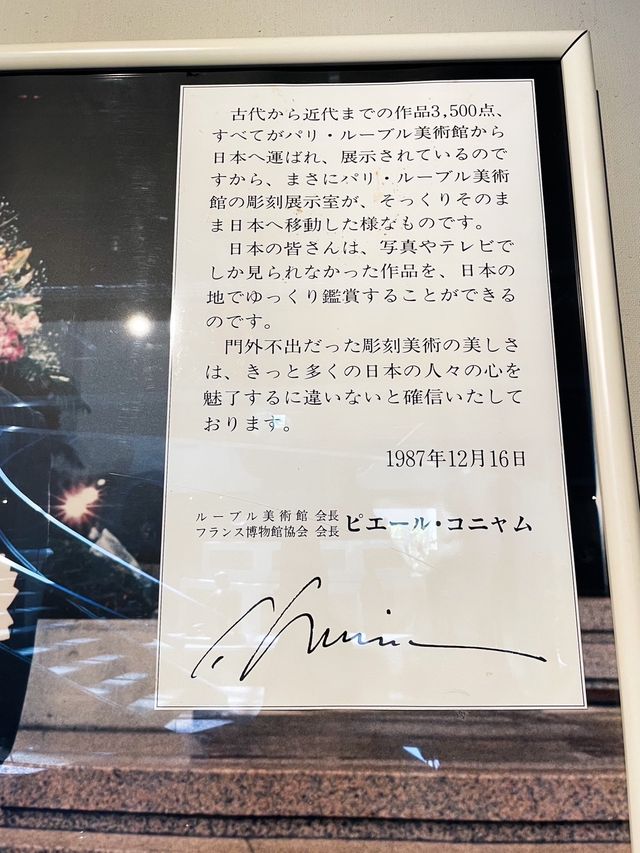 古代から近代までの作品3,500点、
すべてがパリ・ルーブル美術館から
日本へ運ばれ、展示されているので
すから、まさにパリ・ルーブル美術
館の彫刻展示室が、そっくりそのま
ま日本へ移動した様なものです。
日本の皆さんは、写真やテレビで
しか見られなかった作品を、日本の
地でゆっくり鑑賞することができる
のです。
門外不出だった彫刻美術の美しさ
は、きっと多くの日本の人々の心を
魅了するに違いないと確信いたして
おります。
1987年12月16日
ルーブル美術館 会長
フランス博物館協会 会長 ピエール・コニャム